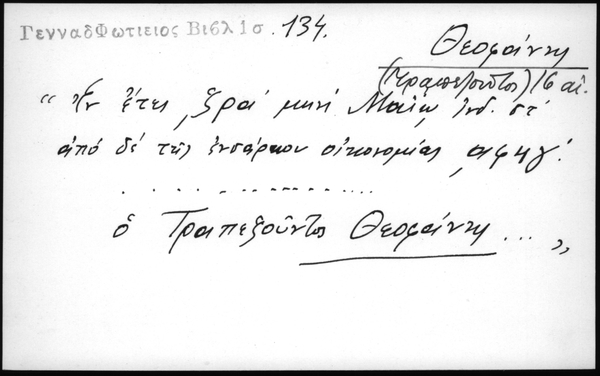 ΓενναδΦωτιειος Βιβλ 1σ. 134.
Θεοφάνης
(Τραπεζοῦντος) 16 αἰ.
“ Ἐν ἔτει ͵ζρα΄ μηνὶ Μαίῳ, ἰνδ. στ΄
ἀπό δέ τῆς ἐνσάρκου οἰκονομίας ͵αφϟγ΄.
. . . . . . . . . . . . . . . .
ὁ Τραπεζοῦντος Θεοφάνης ... „